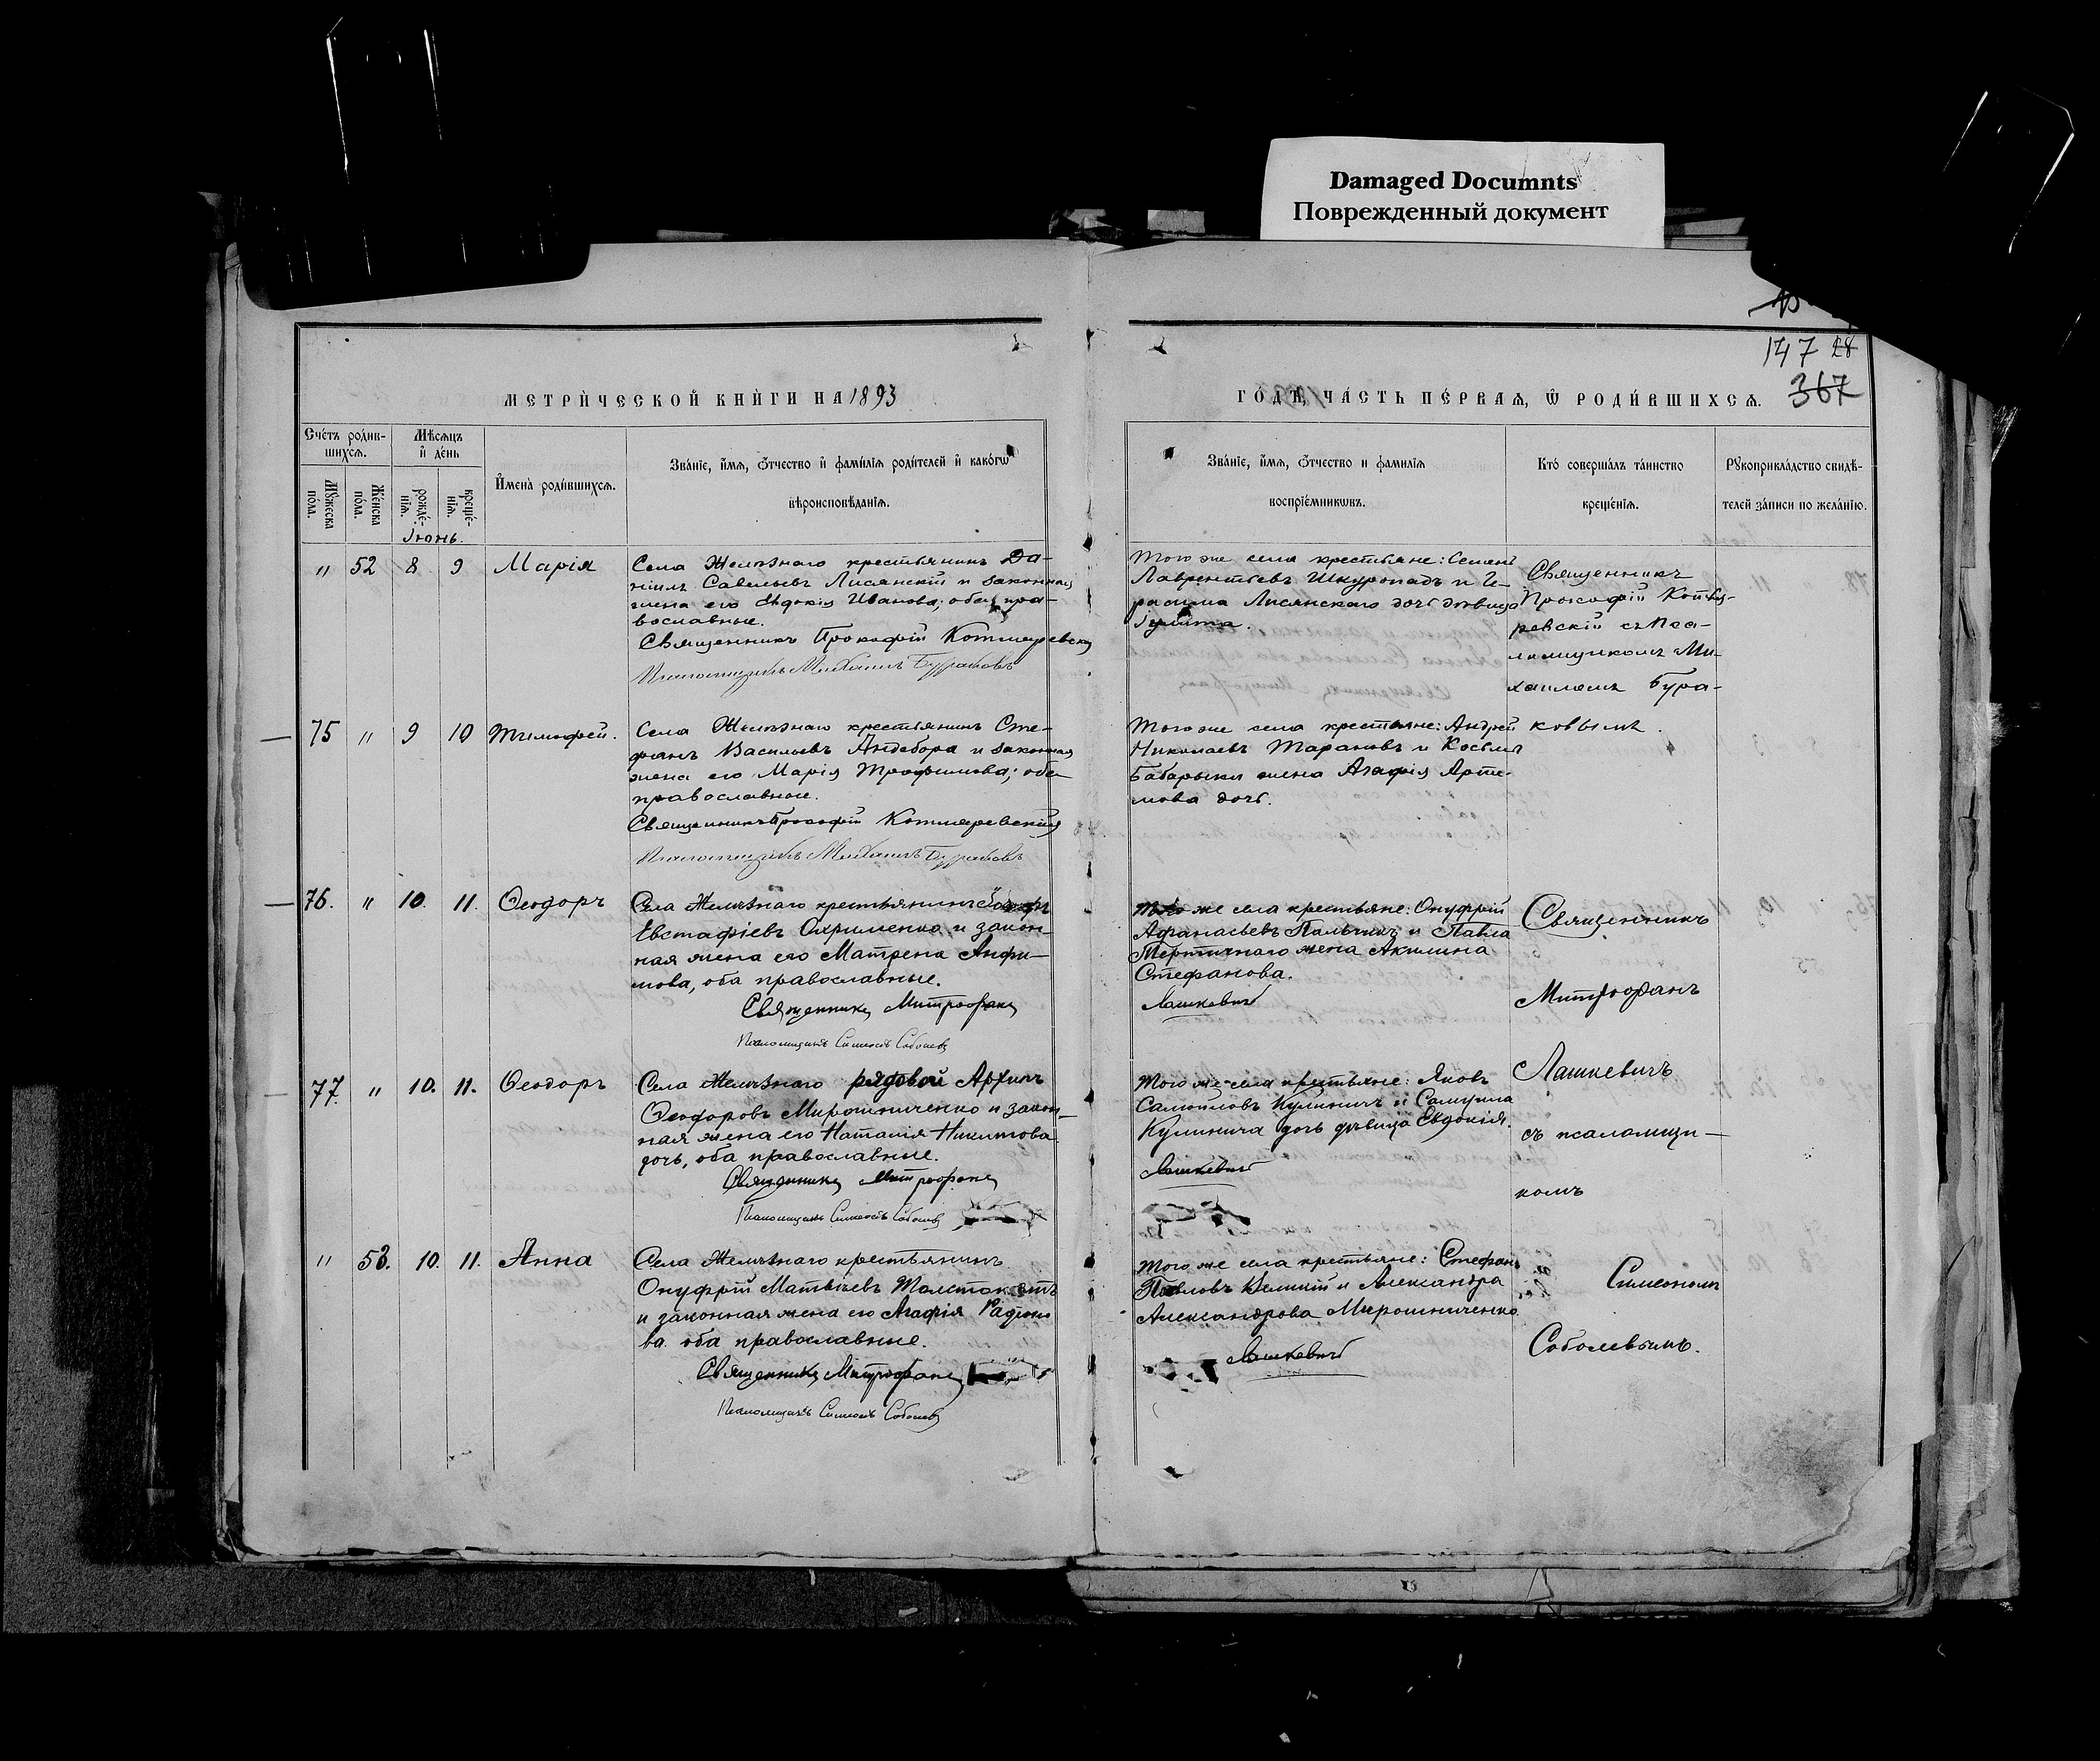 Damaged Documnts
Поврежденный документ
147 28
367
МЕТРИ́ЧЕСКОЙ КНИ́ГИ НА 1893
ГО́ДЪ, ЧА́СТЬ ПЕ́РВАЯ, Ѿ РОДИ́ВШИХСЯ.
Сче́тъ роди́в-
шихсѧ.
Мѣ́сѧцъ
и҆ де́нь
Мꙋ́жеска по́ла.
Же́нска по́ла.
рожде́-нїѧ.
креще́-нїѧ.
И҆мена̀ роди́вшихсѧ.
Зва́нїе, и҆́мѧ, ѻ҆́тчество и҆ фами́лїѧ роди́телей и҆ како́гѡ
вѣроисповѣ́данїѧ.
Зва́нїе, и҆́мѧ, ѻ҆́тчество и фами́лїѧ
воспрїе́мникѡвъ.
Кто̀ соверша́лъ та́инство
креще́нїѧ.
Рꙋкоприкла́дство свидѣ́-
телей за́писи по жела́нїю.
Іюнь.
" 52 8 9 Марія
Села Желѣзнаго крестьянинъ Да-
ніилъ Савельевъ Лисянскій и законная
жена его Евдокія Иванова; оба пра-
вославные.
Священникъ Прокофій Котляревскій
Псаломщикъ Михаилъ Бураковъ
Того же села крестьяне: Семенъ
Лаврентьевъ Шкуропадъ и Ге-
расима Лисянскаго дочь дѣвица
Священникъ
Прокофій Котля-
ревскій съ Пса-
ломщикомъ Ми-
хаиломъ Бура-
ковымъ.
75 " 9 10 Тимофей.
Села Желѣзнаго крестьянинъ Сте-
фанъ Васильевъ Андебора и законная
жена его Марія Трофимова; оба
православные.
Священникъ Прокофій Котляревскій
Псаломщикъ Михаилъ Бураковъ
Того же села крестьяне: Андрей
Николаевъ Тарановъ и Косьмы
Бабарыки жена Агафія Арте-
мова дочь.
76. " 10. 11. Ѳеодоръ
Села Желѣзнаго крестьянинъ
Евстафіевъ Охрименко и закон-
ная жена его Матрена Анфи-
мова, оба православные.
Священникъ Митрофанъ
Псаломщикъ Симеонъ Соболевъ
Того же села крестьяне: Онуфрій
Афанасьевъ Пальчикъ и Павла
Мертичнаго жена Акилина
Стефанова.
Лашкевичъ
Священникъ
Митрофанъ
Лашкевичъ
съ псаломщи-
комъ
Симеономъ
Соболевымъ.
77. " 10. 11. Ѳеодоръ
Села Желѣзнаго рядовой Архипъ
Ѳеодоровъ Мирошниченко и закон-
ная жена его Наталія Никитова
дочь, оба православные.
Священникъ Митрофанъ
Псаломщикъ Симеонъ Соболевъ
Того же села крестьяне: Яковъ
Самойловъ Кулиничъ и Самуила
Кулинича дочь дѣвица Евдокія.
Лашкевичъ
" 53. 10. 11. Анна
Села Желѣзнаго крестьянинъ
Онуфрій Матвіевъ
и законная жена его Агафія Радіоно
ва оба православные.
Священникъ Митрофанъ
Псаломщикъ Симеонъ Соболевъ
Того же села крестьяне: Стефанъ
Павловъ Великій и Александра
Александрова Мирошниченко
Лашкевичъ